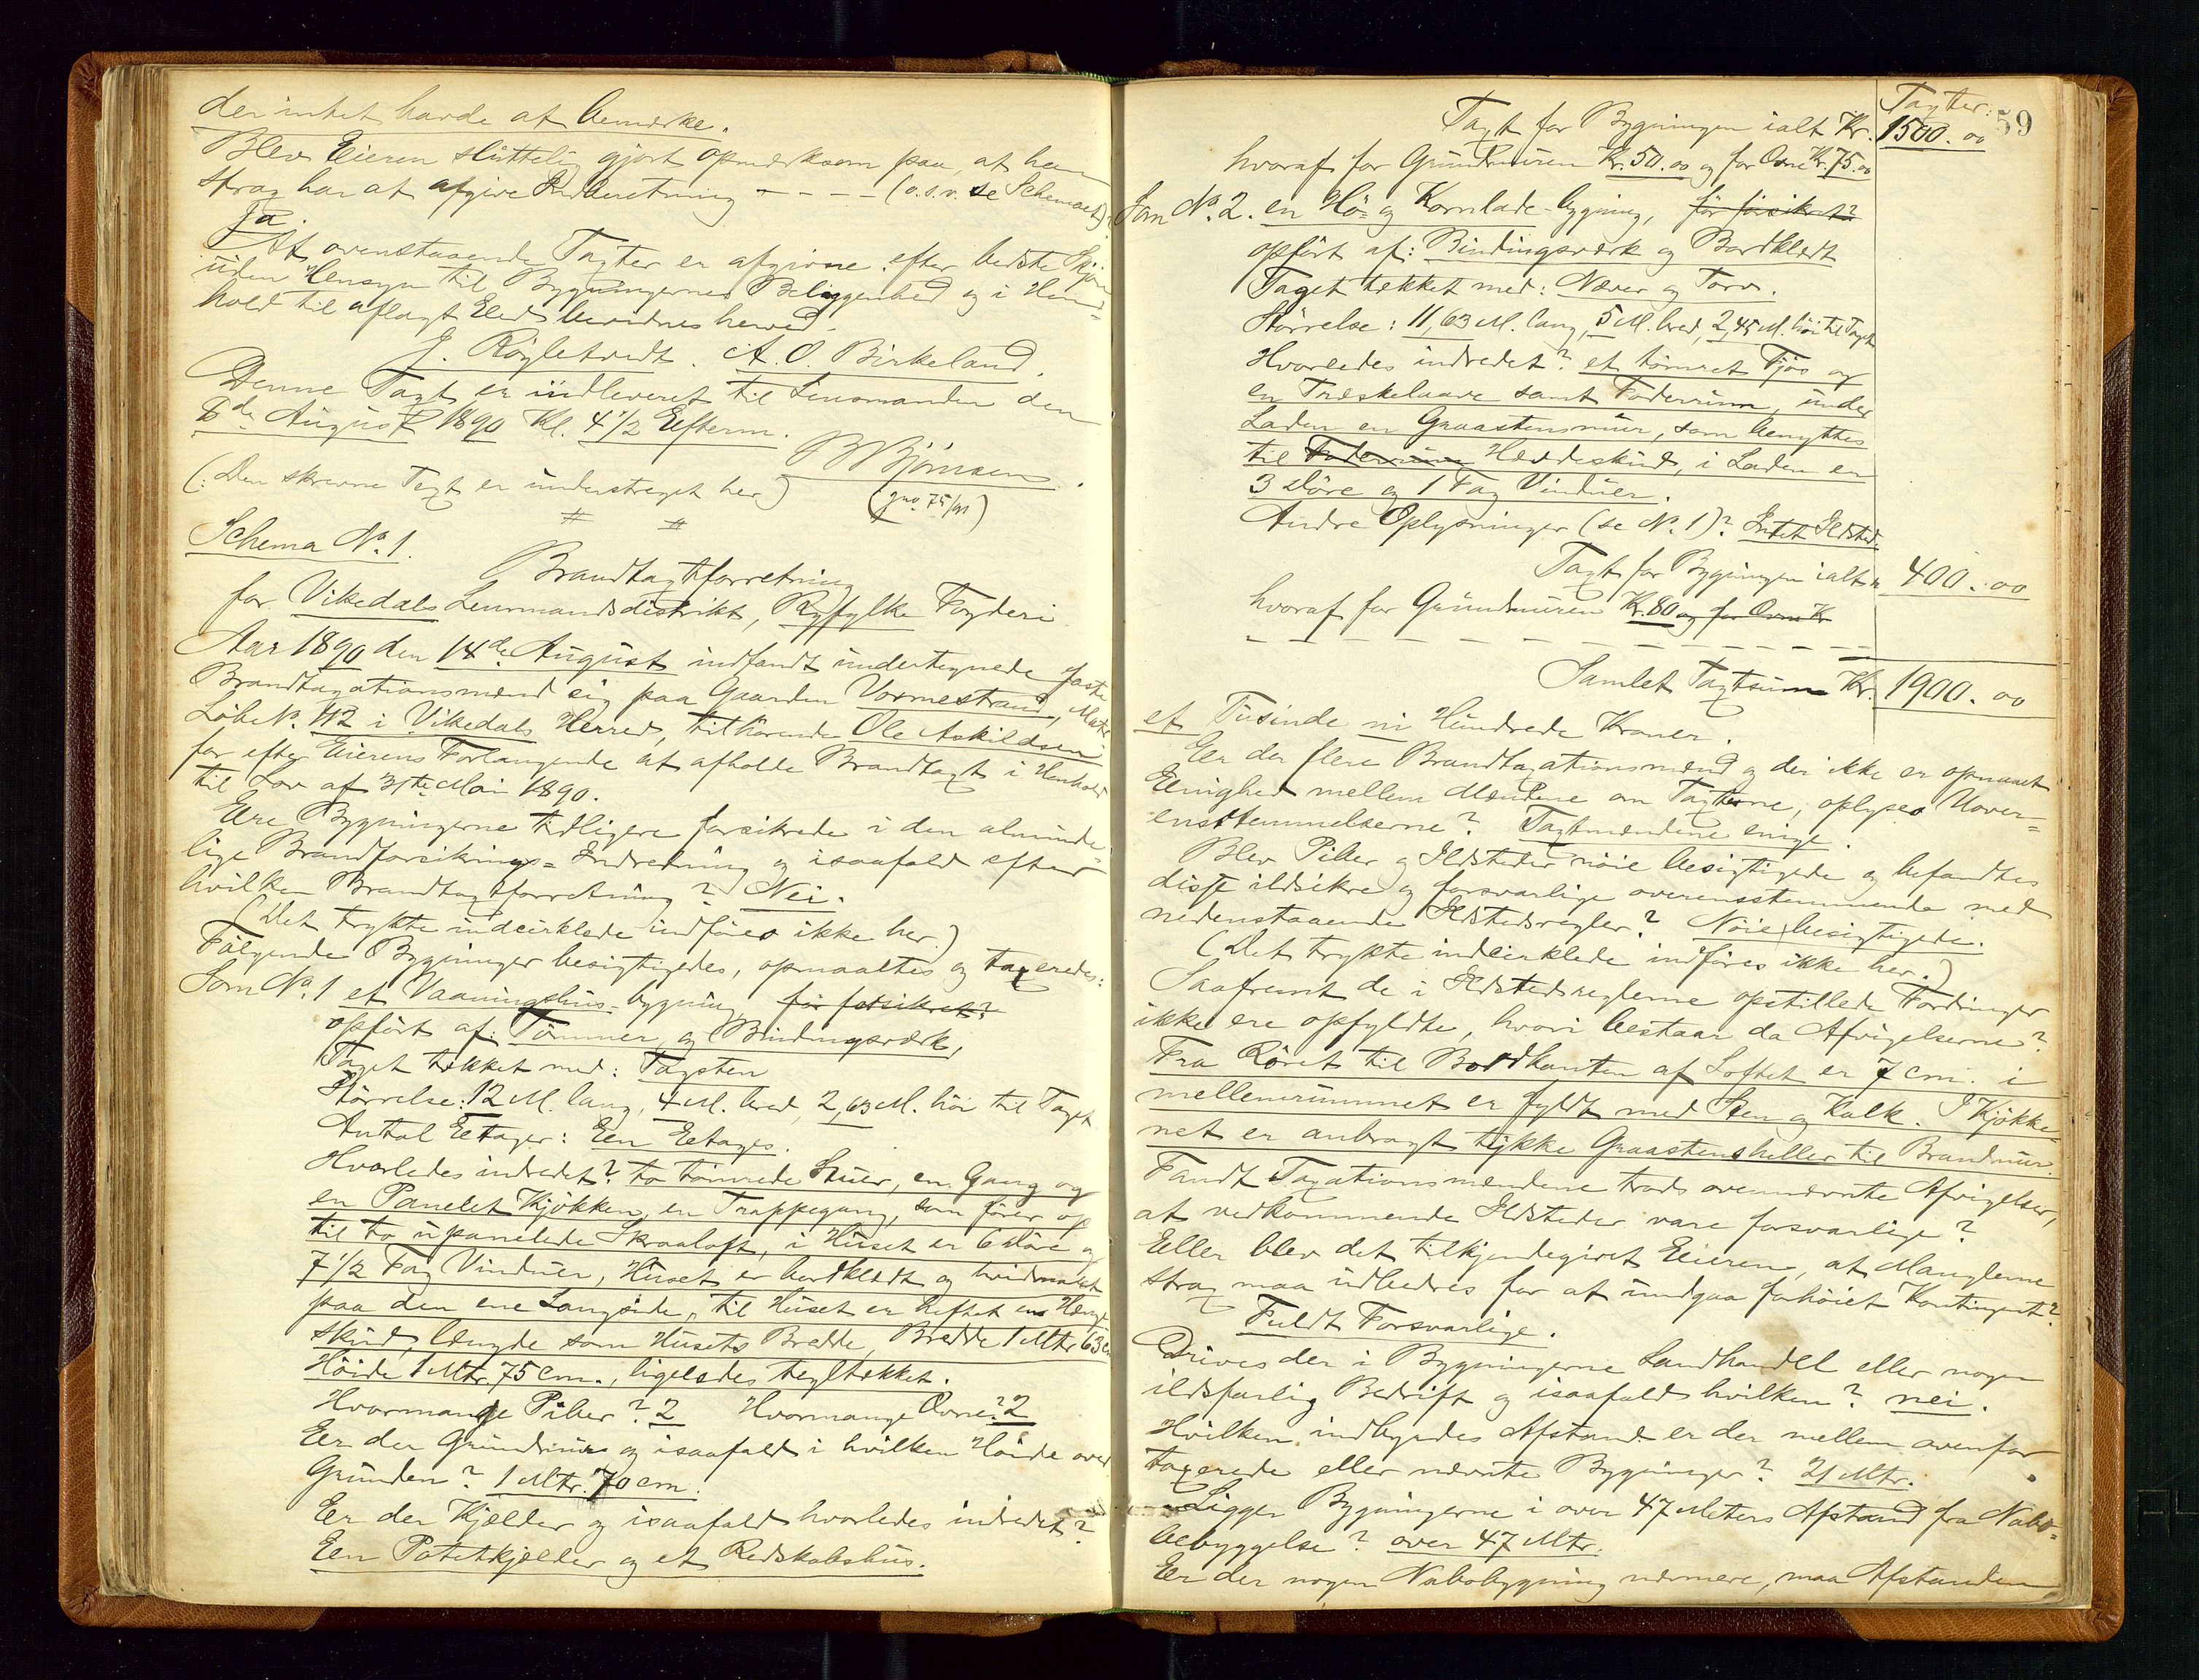 der intet havde at bemærke.
Blev Eieren sluttelig gjort opmærksom paa, at han
strax har at afgive Indberetning - - - - (o.s.v. se Schemaet)?
Ja.
At ovenstaaende Taxter er afgivne efter bedste Skjøn
uden Hensyn til Bygningernes Beliggenhed og i Hen=
hold til aflagt Eed bevidnes herved.
J. Røgletvedt. A. O. Birkeland.
Denne Taxt er indleveret til Lensmanden den
6de August 1890 Kl. 4 1/2 Efterm.
B Bjørnsen.
(: Den skrevne Text er understreget her)
(gno 75/91)
Schema No. 1.
Brandtaxtforretning
for Vikedals Lensmandsdistrikt, Ryfylke Fogderi
Aar 1890 den 14de August indfandt undertegnede faste
Brandtaxationsmænd sig paa Gaarden Vormestrand, Matr.
Løbe No. 42 i Vikedals Herred, tilhørende Ole Askildsen
for efter Eierens Forlangende at afholde Brandtaxt i Henhold
til Lov af 31te Mai 1890.
Ere Bygningerne tidligere forsikrede i den alminde=
lige Brandforsikrings=Indretning og isaafald efter
hvilken Brandtaxtforretning? Nei.
(Det trykte indcirklede indføres ikke her.)
Følgende Bygninger besigtigedes, opmaaltes og taxeredes:
Som No. 1 et Vaaningshus-bygning, før forsikret?
opført af: Tømmer og Bindingsværk,
Taget tækket med: Tagsten
Størrelse: 12 M. lang, 4 M. bred, 2,63 M. høi til Taget
Antal Eetager: Een Eetages.
Hvorledes indredet? to tømrede Stuer, en Gang og
en Panelet Kjøkken, en Trappegang, som fører op
til to upanelede Skraaloft, i Huset er 6 Døre og
7 1/2 Fag Vinduer, Huset er bordklædt og hvidmalet
paa den ene Langside, til Huset er heftet en Hænge
skud, længde som Husets Bredde, Bredde 1 Mtr 63 cm
Høide 1 Mtr. 75 cm., ligeledes tegltækket.
Hvormange Piber? 2 Hvormange Ovne? 2
Eer der Grundmur og isaafald i hvilken Høide over
Grunden? 1 Mtr. 70 cm.
Eer der Kjælder og isaafald hvorledes indredet?
Een Potetkjælder og et Redskabshus.
Taxter:
59
Taxt for Bygningen ialt Kr. 1500.00
hvoraf for Grundmuren Kr. 50.00 og for Ovne Kr. 75.00
Som No. 2. en Hø- og Kornlade-bygning, før forsikret?
opført af: Bindingsværk og Bordklædt
Taget tækket med: Næver og Torv.
Størrelse: 11,63 M. lang, 5 M. bred, 2,45 M. høi til Taget
Hvorledes indredet? et tømret Fjøs og
en Træskelaave samt Foderrum, under
Laden en Graastensmur, som benyttes
til Foderrum Hæddeskud, i Laden er
3 Døre og 1 Fag Vinduer.
Andre Oplysninger (se No. 1)? Intet Ildsted.
Taxt for Bygningen ialt " 400.00
hvoraf for Grundmuren Kr. 80 og for Ovne Kr
Samlet Taxtsum Kr. 1900.00
et Tusinde ni Hundrede Kroner.
Eer der flere Brandtaxationsmænd og der ikke er opnaaet
Eenighed mellem Mændene om Taxterne, oplyses Uover=
ensstemmelserne? Taxtmændene enige.
Blev Piber og Ildsteder nøie besigtigede og befandtes
disse ildsikre og forsvarlige overensstemmende med
nedenstaaende Ildstedsregler? Nøie besigtigede.
(Det trykte indcirklede indføres ikke her.)
Saafremt de i Ildstedsreglerne opstillede Fordringer
ikke ere opfyldte, hvori bestaar da Afvigelserne?
Fra Røret til Bordkanten af Loftet er 7 cm. i
mellemrummet er fyldt med Sten og Kalk. I Kjøkke=
net er anbragt tykke Graastensheller til Brandmur.
Fandt Taxationsmændene trods ovennævnte Afvigelser,
at vedkommende Ildsteder vare forsvarlige?
Eller blev det tilkjendegivet Eieren, at Manglerne
strax maa udbedres for at undgaa forhøiet Kontingent?
Fuldt Forsvarlige.
Drives der i Bygningerne Landhandel eller nogen
ildsfarlig Bedrift og isaafald hvilken? nei.
Hvilken indbyrdes Afstand er der mellem ovenfor
taxerede eller nævnte Bygninger? 21 Mtr.
Ligger Bygningerne i over 47 Meters Afstand fra Nabo=
bebyggelse? over 47 Mtr.
Eer der nogen Nabobygning nærmere, maa Afstanden